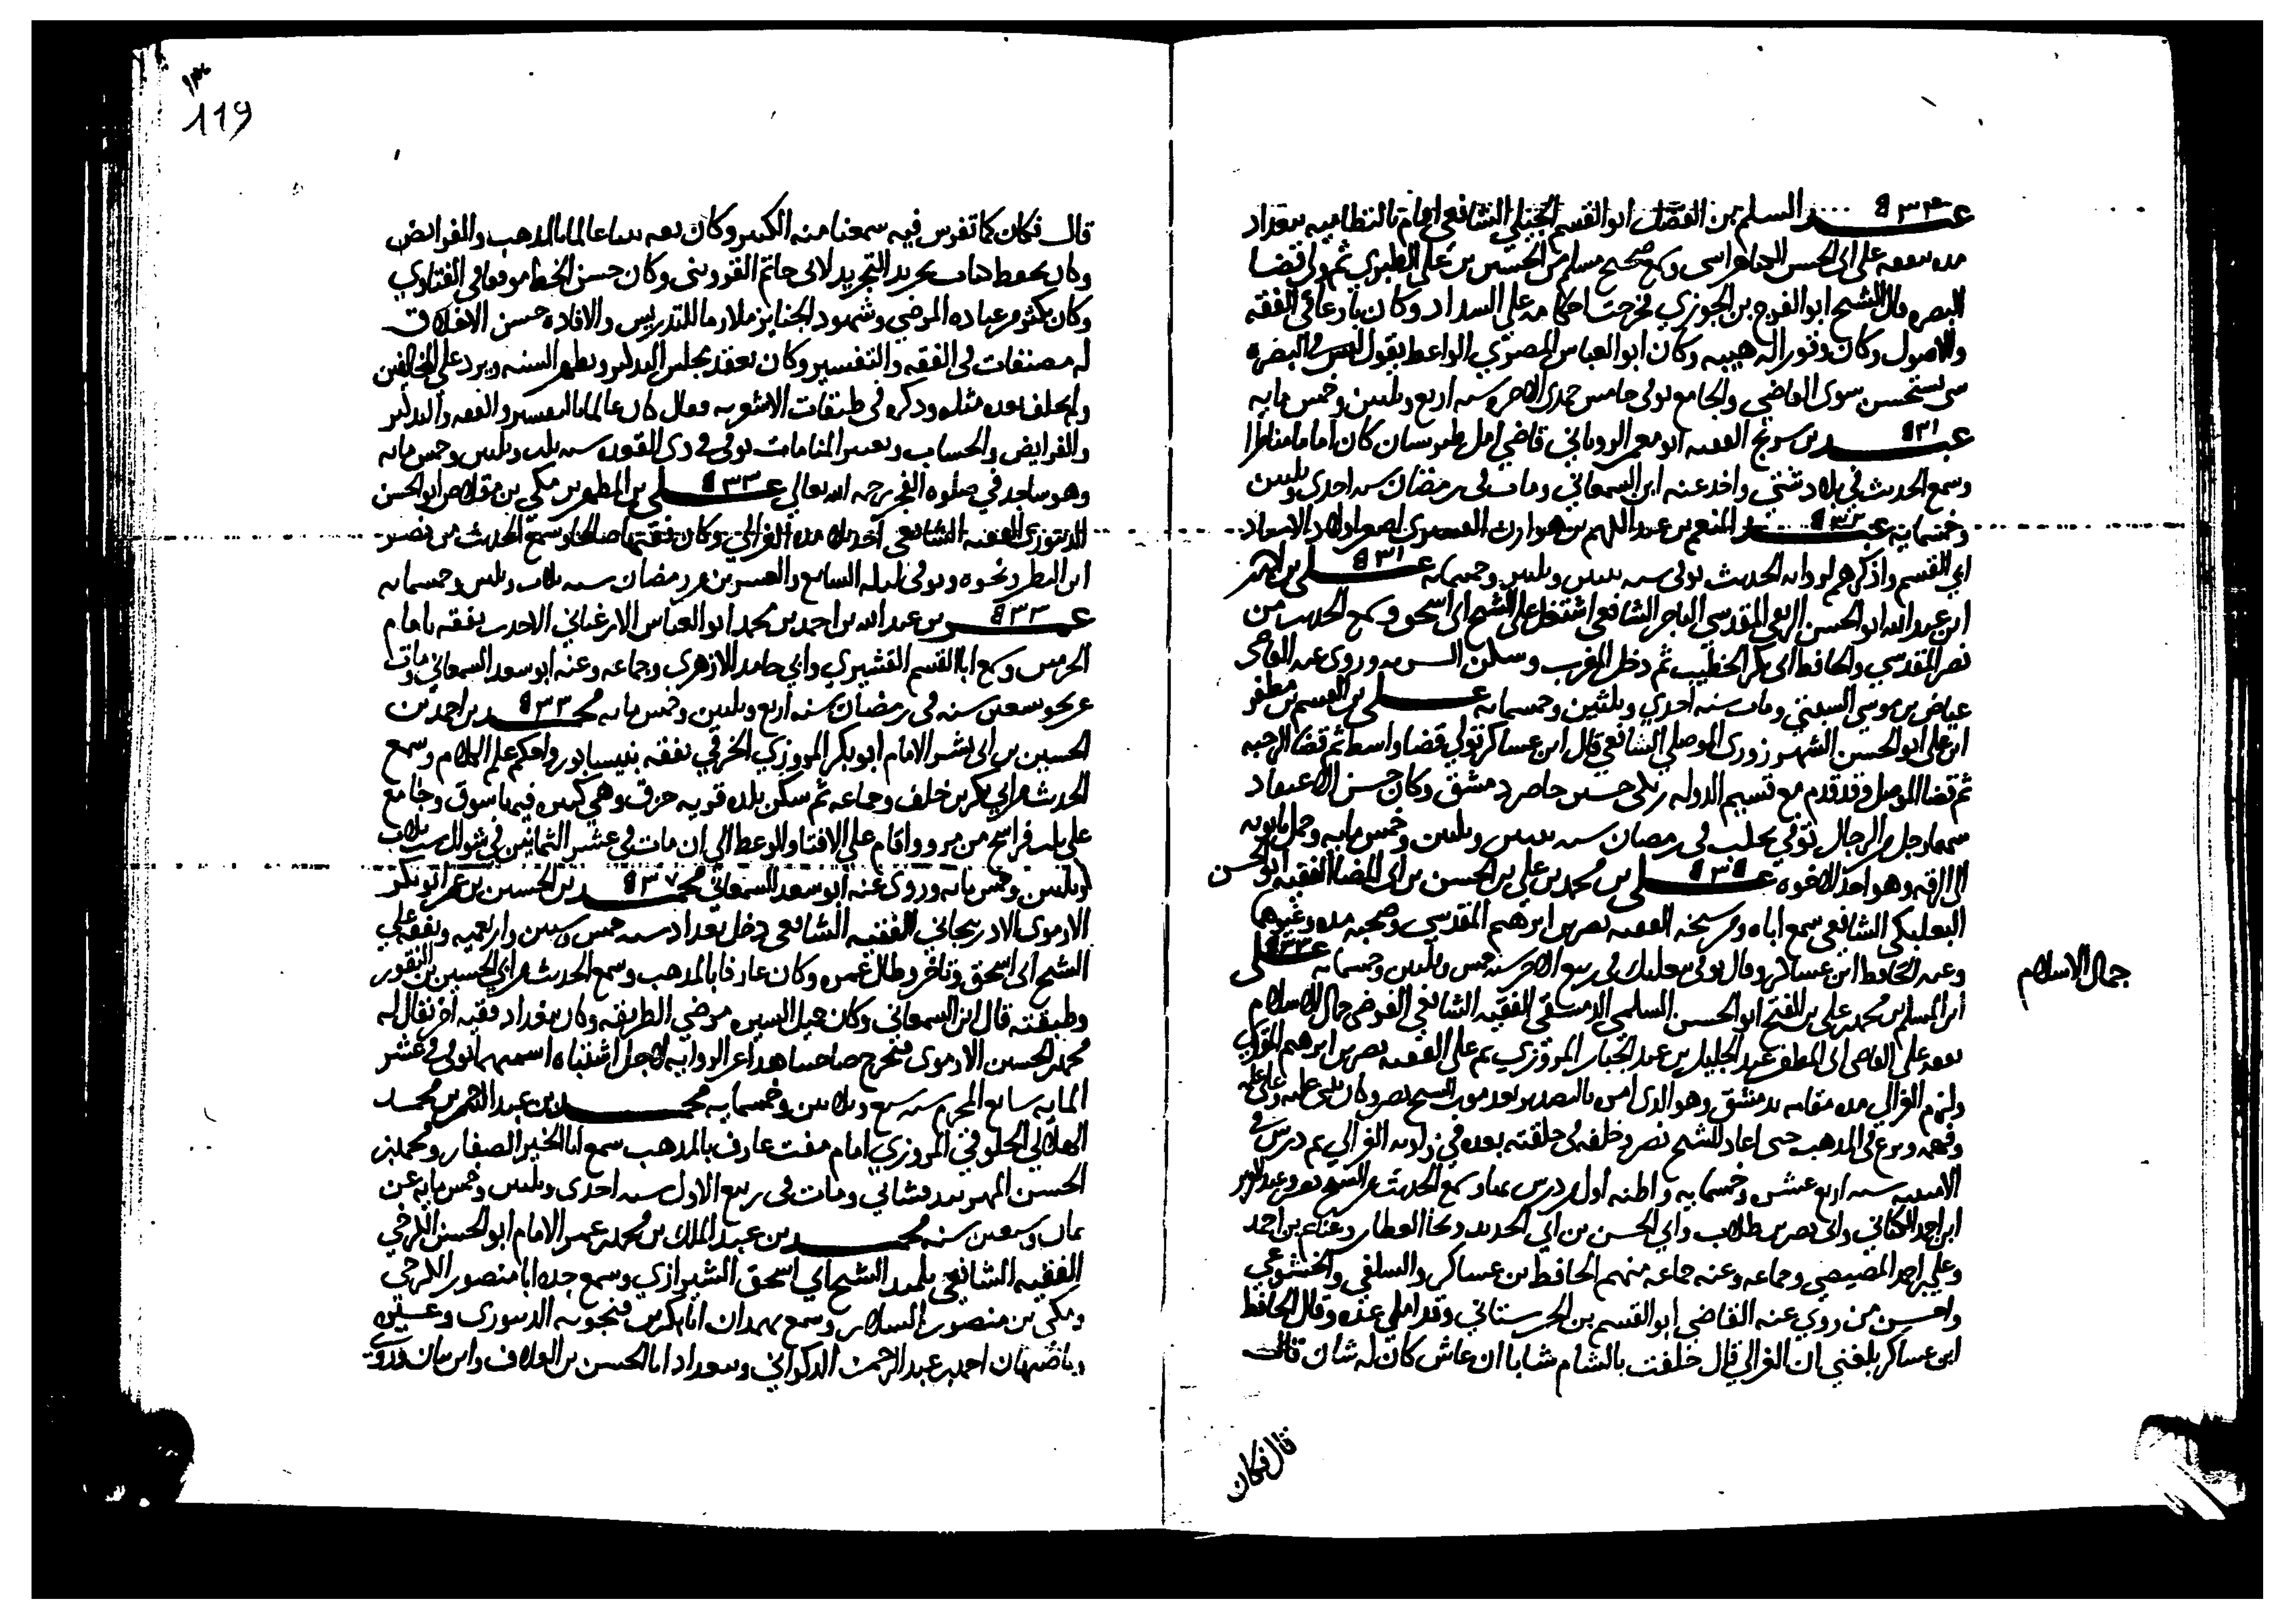 عبد السلم بن الفضل ابو القسم الجيلي الشافعي اقام بالنظاميه ببغداد
مده تفقه على الى الحسن الهراسى وسمع صحيح مسلم من الحسين بن علي الطبري ثم ولى قضا
البصره قال الشيخ ابو الفرج بن الجوزي فجرت احكامه علي السداد وكان بارعا في الفقه
والاصول وكان وقورا له هيبه وكان ابو العباس المصري الواعظ يقول ليس في البصره
شى يستحسن سوى القاضي والجامع توفى خامس جمدى الاخره سنه اربع وثلثين وخمس مايه
عبد بن سريج الفقيه ابو معمر الروياني قاضي امل طبرستان كان اماما مناظرا
وسمع الحديث في بلاد شتي واخذ عنه ابن السمعاني ومات فى رمضان سنه احدى وثلثين
وخمسمايه عبد المنعم بن عبد الكريم بن هوازن القشيري اصغر اولاد الاستاد
ابي القسم واكثرهم لروايه الحديث توفى سنه ثنتين وثلثين وخمسمايه علي بن
ابن عبد الله ابو الحسن الربعي المقدسي التاجر الشافعي اشتغل على الشيخ ابى اسحق وسمع الحديث من
نصر المقدسي والحافظ ابى بكر الخطيب ثم دخل المغرب وسكن المريه وروى عنه القاضى
عياض بن موسي السبتي ومات سنه احدي وثلثين وخمسمايه علي بن القسم بن مظفر
ابن على ابو الحسن الشهرزورى الموصلي الشافعي قال ابن عساكر تولي قضا واسط ثم قضا الرحبه
ثم قضا الموصل وقد قدم مع قسيم الدوله زنكى حين حاصر دمشق وكان حسن الاعتقاد
شهما رجل من الرجال توفي بحلب فى رمضان سنه ثنتين وثلثين وخمس مايه وحمل تابوته
الى الرقه وهو احد الاخوه علي بن محمد بن علي بن الحسن بن ابى المضا الفقيه ابو الحسن
البعلبكي الشافعي سمع اباه وشيخه الفقيه نصر بن ابرهيم المقدسي وصحبه مده وغيرهما
وعنه الحافظ ابن عساكر وقال توفى ببعلبك فى ربيع الاخر سنه خمس وثلثين وخمسمايه علي
جمال الاسلام
ابن المسلم بن محمد بن علي بن الفتح ابو الحسن السلمي الدمشقي الفقيه الشافعي الفرضى جمال الاسلام
تفقه علي القاضى ابى المظفر عبد الجليل بن عبد الجبار المروزي ثم على الفقيه نصر بن ابرهيم
ولزم الغزالي مده مقامه بدمشق وهو الذى امره بالتصدير بعد موت الشيخ نصر وكان يثنى على علمه
وفهمه وبرع فى المذهب حتى اعاد للشيخ نصر وخلفه فى حلقته بعده في زاويه الغزالي ثم درس في
الامينيه سنه اربع عشره وخمسمايه واظنه اول من درس بها وسمع الحديث من الشيخ نصر وعبد العزيز
ابن احمد الكتاني وابى نصر بن طلاب وابي الحسن بن ابي الحديد ونجا العطار وغنايم بن احمد
وعلي بن احمد المصيصي وجماعه وعنه جماعه منهم الحافظ بن عساكر والسلفي والخشوعي
واخر من روي عنه القاضي ابو القسم بن الحرستاني وقد املى عنه وقال الحافظ
ابن عساكر بلغني ان الغزالي قال خلفت بالشام شابا ان عاش كان له شان قال
قال فكان
119
قال فكان كما تفرس فيه سمعنا منه الكثير وكان ثقه ثبتا عالما بالمذهب والفرايض
وكان يحفظ كتاب تجريد التجريد لابى حاتم القزوينى وكان حسن الخط موفقا في الفتاوي
وكان يكثر من عياده المرضي وشهود الجنايز ملازما للتدريس والافاده حسن الاخلاق
له مصنفات فى الفقه والتفسير وكان يعقد مجلس التذكير ويظهر السنه ويرد علي المخالفين
ولم يخلف بعده مثله وذكره فى طبقات الاشعريه فقال كان عالما بالتفسير والفقه والتذكير
والفرايض والحساب وتعبير المنامات توفى في ذى القعده سنه ثلث وثلثين وخمس مايه
وهو ساجد في صلوه الفجر رحمه الله تعالي علي بن المطهر بن مكي بن مقلاص ابو الحسن
الدينوري الفقيه الشافعي احد تلامذه الغزالي وكان فقيها صالحا وسمع الحديث من نصر
ابن البطر ونحوه وتوفى ليله السابع والعشرين من رمضان سنه ثلاث وثلثين وخمسمايه
عمر بن عبد الله بن احمد بن محمد ابو العباس الارغياني الاحدب تفقه بامام
الحرمين وسمع ابا القسم القشيري وابي حامد الازهري وجماعه وعنه ابو سعد السمعاني ومات
عن نحو سبعين سنه فى رمضان سنه اربع وثلثين وخمس مايه محمد بن احمد بن
الحسين بن ابى بشر الامام ابو بكر المروزي الخرقي تفقه بنيسابور واحكم علم الكلام وسمع
الحديث من ابي بكر بن خلف وجماعه ثم سكن بلده قريه خرق وهي كبيره فيها سوق وجامع
على ثلث فراسخ من مرو واقام علي الافتا والوعظ الي ان مات في عشر الثمانين في شوال سنه ثلاث
وثلثين وخمس مايه وروى عنه ابو سعد السمعاني محمد بن الحسين بن عمر ابو بكر
الارموى الاذربيجاني الفقيه الشافعى دخل بغداد سنه خمس وستين واربعميه وتفقه علي
الشيخ ابى اسحق وتاخر وطال عمره وكان عارفا بالمذهب وسمع الحديث من ابي الحسين بن النقور
وطبقته قال ابن السمعاني وكان جميل السيره مرضي الطريقه وكان ببغداد فقيه اخر يقال له
محمد بن الحسين الارموى فتحرج صاحبنا هذا عن الروايه لاجل اشتباه اسمهما توفى في عشر
المايه سابع المحرم سنه سبع وثلاثين وخمسمايه محمد بن عبد الرحمن بن محمد
الهلالي الخلوقي المروزي امام مفت عارف بالمذهب سمع ابا الخير الصفار ومحمد بن
الحسن المهربندقشاني ومات فى ربيع الاول سنه احدى وثلثين وخمس مايه عن
ثمان وسبعين سنه محمد بن عبد الملك بن محمد بن عمر الامام ابو الحسن الكرجي
الفقيه الشافعي تلميذ الشيخ ابي اسحق الشيرازي وسمع جده ابا منصور الكرجي
ومكي بن منصور السلار وسمع بهمدان ابا بكر بن فنجويه الدينوري وغيره
وباصبهان احمد بن عبد الرحمن الذكواني وببغداد ابا الحسن بن العلاف وابن بيان وروي